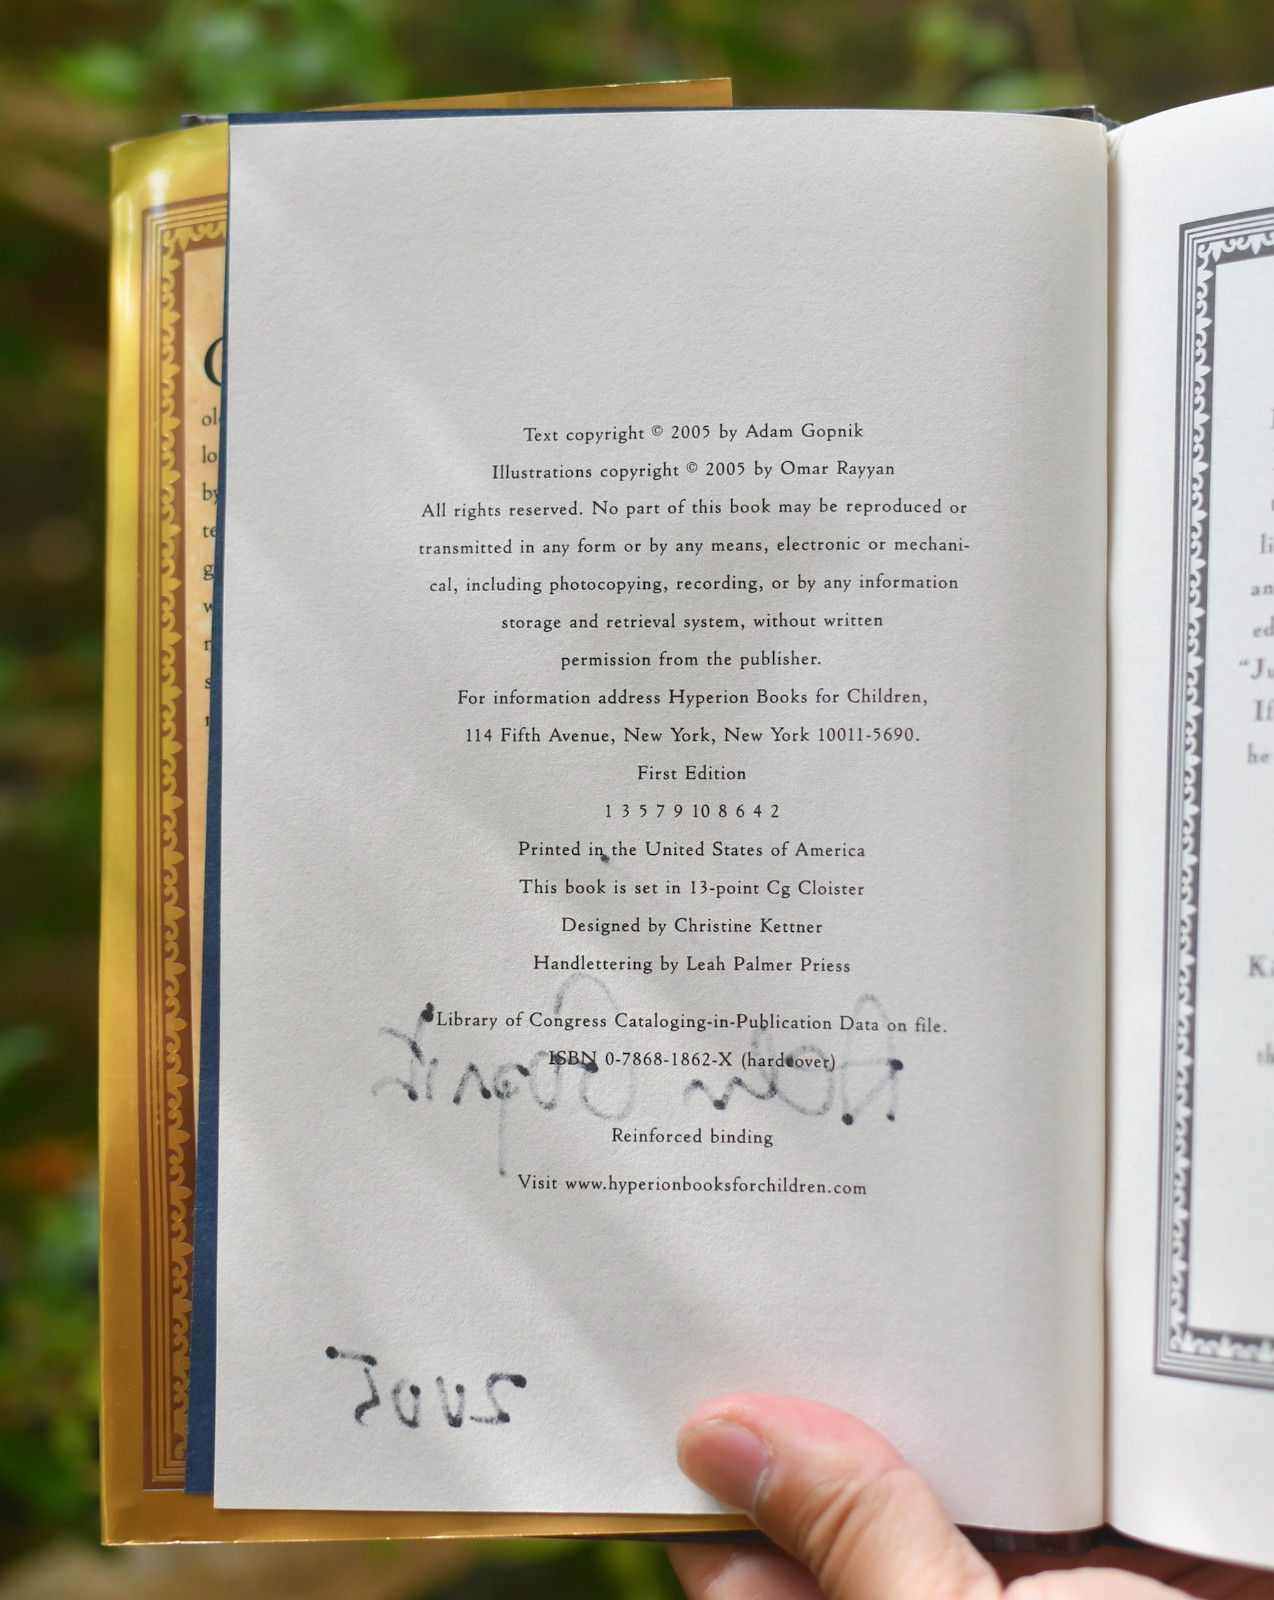 Text copyright © 2005 by Adam Gopnik
Illustrations copyright © 2005 by Omar Rayyan
All rights reserved. No part of this book may be reproduced or
transmitted in any form or by any means, electronic or mechani-
cal, including photocopying, recording, or by any information
storage and retrieval system, without written
permission from the publisher.
For information address Hyperion Books for Children,
114 Fifth Avenue, New York, New York 10011-5690.
First Edition
1 3 5 7 9 10 8 6 4 2
Printed in the United States of America
This book is set in 13-point Cg Cloister
Designed by Christine Kettner
Handlettering by Leah Palmer Priess
Library of Congress Cataloging-in-Publication Data on file.
ISBN 0-7868-1862-X (hardcover)
Adam Gopnik
Reinforced binding
Visit www.hyperionbooksforchildren.com
2005